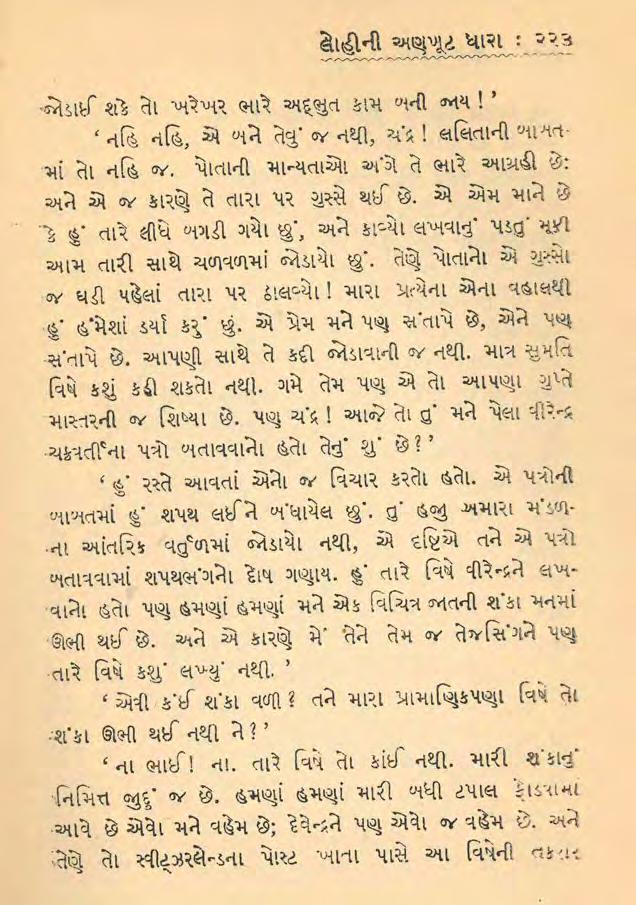 લોહીની અણખૂટ ધારા : ૨૨૩
જોડાઈ શકે તો ખરેખર ભારે અદ્‌ભુત કામ બની જાય ! ’
‘ નહિ નહિ, એ બને તેવું જ નથી, ચંદ્ર ! લલિતાની બાબત-
માં તો નહિ જ. પોતાની માન્યતાઓ અંગે તે ભારે આગ્રહી છે:
અને એ જ કારણે તે તારા પર ગુસ્સે થઈ છે. એ એમ માને છે
કે હું તારે લીધે બગડી ગયો છું, અને કાવ્યો લખવાનું પડતું મૂકી
આમ તારી સાથે ચળવળમાં જોડાયો છું. તેણે પોતાનો એ ગુસ્સો
જ ઘડી પહેલાં તારા પર ઠાલવ્યો ! મારા પ્રત્યેના એના વહાલથી
હું હંમેશાં ડર્યા કરું છું. એ પ્રેમ મને પણ સંતાપે છે, એને પણ
સંતાપે છે. આપણી સાથે તે કદી જોડાવાની જ નથી. માત્ર સુમતિ
વિષે કશું કહી શકતો નથી. ગમે તેમ પણ એ તો આપણા ગુપ્તે
માસ્તરની જ શિષ્યા છે. પણ ચંદ્ર ! આજે તો તું મને પેલા વીરેન્દ્ર
ચક્રવર્તીના પત્રો બતાવવાનો હતો તેનું શું છે ? ’
‘ હું રસ્તે આવતાં એનો જ વિચાર કરતો હતો. એ પત્રોની
બાબતમાં હું શપથ લઈને બંધાયેલ છું. તું હજી અમારા મંડળ-
ના આંતરિક વર્તુળમાં જોડાયો નથી, એ દૃષ્ટિએ તને એ પત્રો
બતાવવામાં શપથભંગનો દોષ ગણાય. હું તારે વિષે વીરેન્દ્રને લખ-
વાનો હતો પણ હમણાં હમણાં મને એક વિચિત્ર જાતની શંકા મનમાં
ઊભી થઈ છે. અને એ કારણે મેં તેને તેમ જ તેજસિંગને પણ
તારે વિષે કશું લખ્યું નથી. ’
‘ એવી કંઈ શંકા વળી ? તને મારા પ્રામાણિકપણા વિષે તો
શંકા ઊભી થઈ નથી ને ? ’
‘ ના ભાઈ ! ના. તારે વિષે તો કાંઈ નથી. મારી શંકાનું
નિમિત્ત જુદું જ છે. હમણાં હમણાં મારી બધી ટપાલ ફોડવામાં
આવે છે એવો મને વહેમ છે; દેવેન્દ્રને પણ એવો જ વહેમ છે. અને
તેણે તો સ્વીટ્ઝરલેન્ડના પોસ્ટ ખાતા પાસે આ વિષેની તકરાર